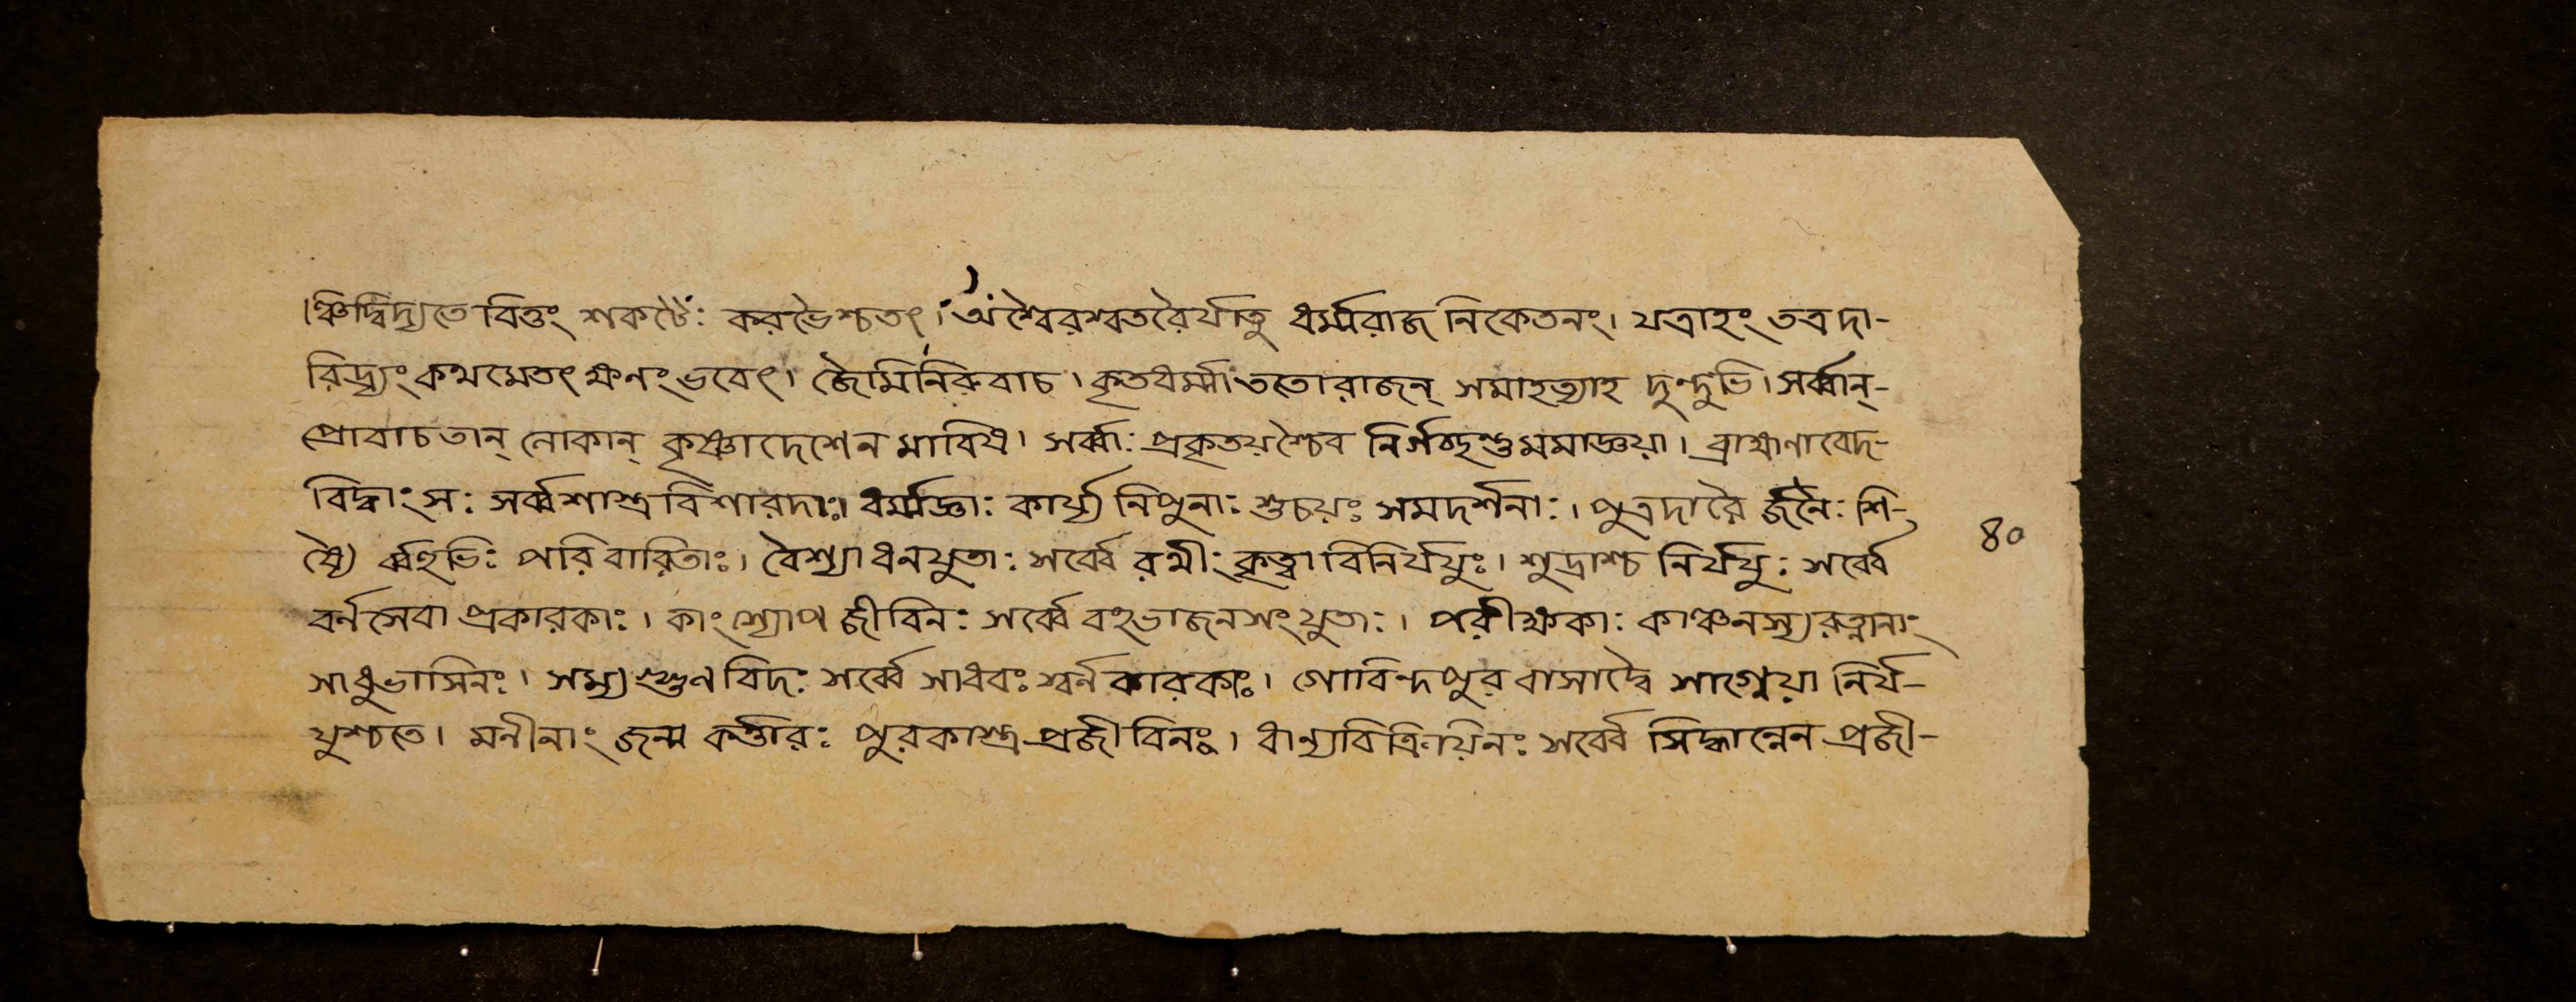 ঞ্চিদ্বিদ্যতে বিত্তং শকটৈঃ করভৈশ্চতৎ। অশ্বৈরশ্বতরৈর্যাতু ধর্ম্মরাজ নিকেতনং। যত্রাহং তত্র দা-
রিদ্র্যং কথমেতৎ ক্ষণং ভবেৎ। জৈমিনিরুবাচ। কৃতবর্ম্মা ততো রাজন্ সমাহত্যাহ দুন্দুভি। সর্ব্বান্-
প্রোবাচ তান্ লোকান্ কৃষ্ণাদেশেন মারিষ। সর্ব্বাঃ প্রকৃতয়শ্চৈব নির্গচ্ছন্তু মমাজ্ঞয়া। ব্রাহ্মণা বেদ-
বিদ্বাংসঃ সর্ব্বশাস্ত্র বিশারদাঃ। ধর্ম্মজ্ঞাঃ কার্য্য নিপুনাঃ শুচয়ঃ সমদর্শনাঃ। পুত্রদারৈ র্জনৈঃ শি-
ষ্যৈ র্ব্বহুভিঃ পরিবারিতাঃ। বৈশ্যা ধনযুতাঃ সর্ব্বে রথীং কৃত্বা বিনির্যযুঃ। শুদ্রাশ্চ নির্যযুঃ সর্ব্বে ৪০
বর্ন সেবা প্রকারকাঃ। কাংশ্যোপ জীবিনঃ সর্ব্বে বহুভাজনসংযুতাঃ। পরীক্ষকাঃ কাঞ্চনস্য রত্নানাং
সাধুভাসিনঃ। সম্যগ্গুণ বিদঃ সর্ব্বে সাধবঃ স্বর্ন কারকাঃ। গোবিন্দপুর বাসাদ্বৈ নির্য-
যুশ্চতে। মনীনাং জন্ম কর্ত্তারঃ প্রজীবিনঃ। ধান্যবিক্রয়িনঃ সর্ব্বে সিদ্ধান্নেন প্রজী-